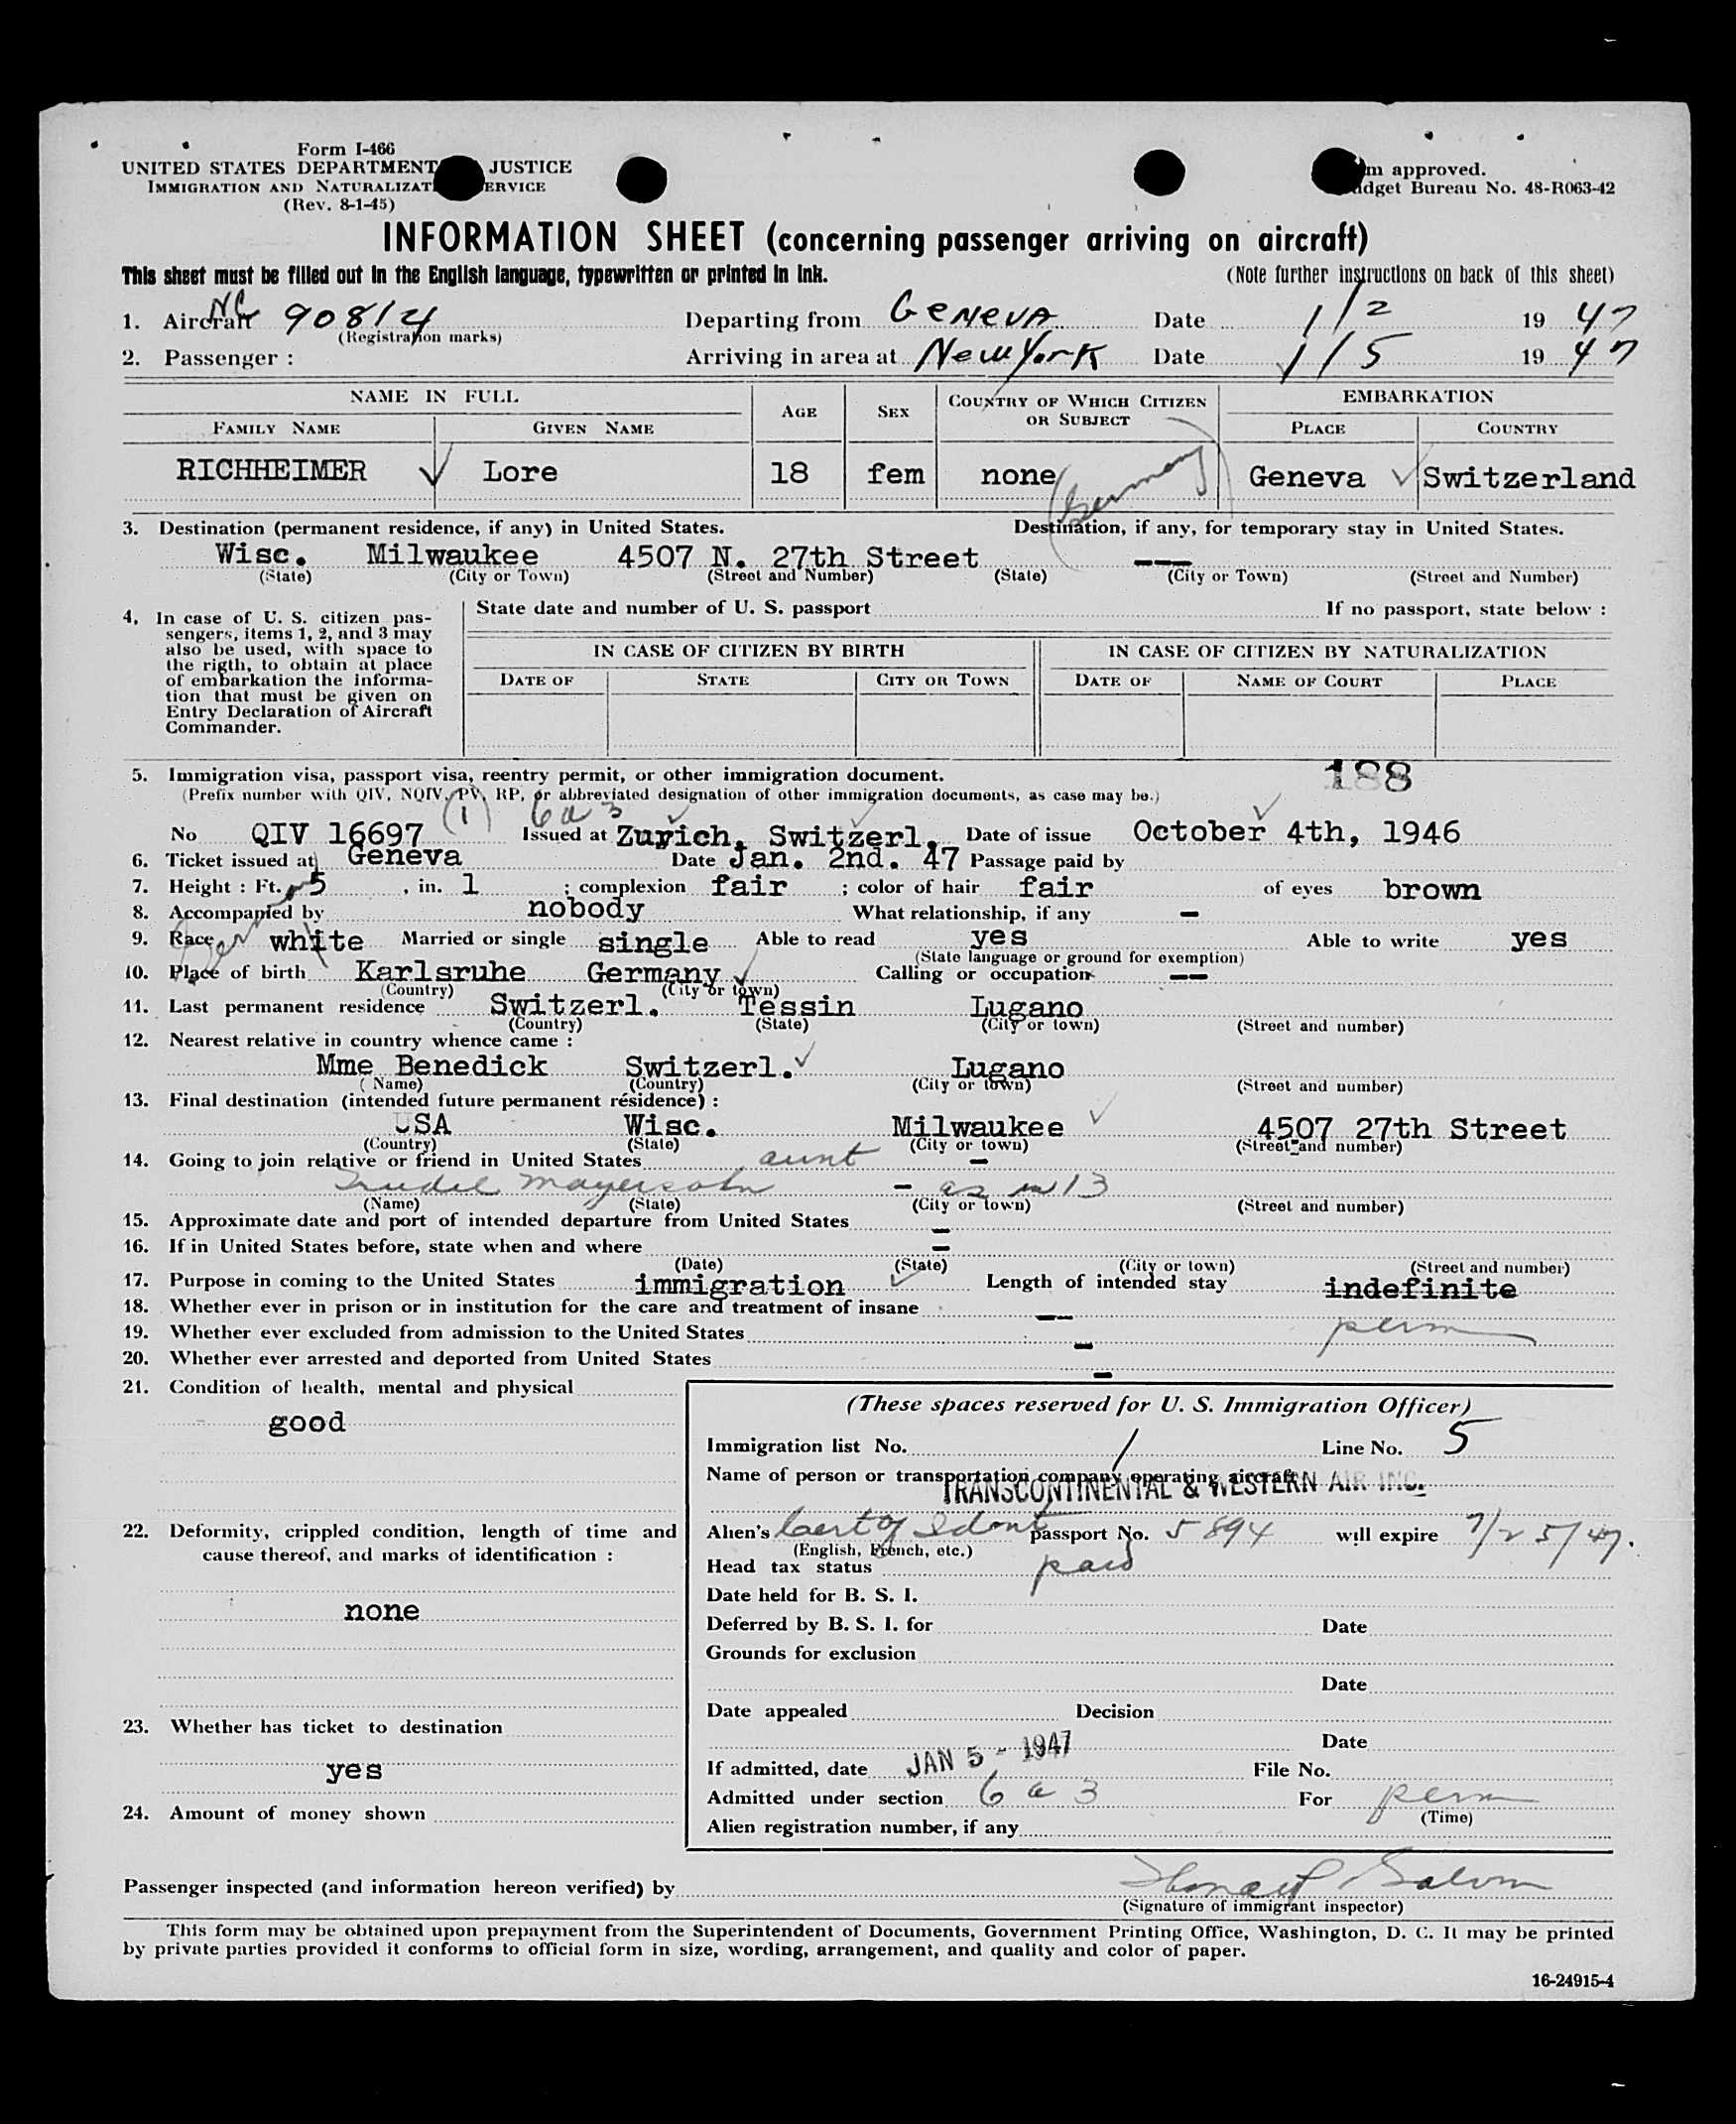 Form I-466
UNITED STATES DEPARTMENT JUSTICE
IMMIGRATION AND NATURALIZAT ERVICE
(Rev. 8-1-45)
m approved.
dget Bureau No. 48-R063-42
INFORMATION SHEET (concerning passenger arriving on aircraft)
This sheet must be filled out in the English language, typewritten or printed in ink. (Note further instructions on back of this sheet)
1. Aircraft NC 90814 Departing from Geneva Date 1/2 19 47
(Registration marks)
2. Passenger : Arriving in area at New York Date 1/5 19 47
NAME IN FULL AGE SEX COUNTRY OF WHICH CITIZEN OR SUBJECT EMBARKATION
FAMILY NAME GIVEN NAME PLACE COUNTRY
RICHHEIMER Lore 18 fem none (Germany) Geneva Switzerland
3. Destination (permanent residence, if any) in United States. Destination, if any, for temporary stay in United States.
Wisc. Milwaukee 4507 N. 27th Street ---
(State) (City or Town) (Street and Number) (State) (City or Town) (Street and Number)
4, In case of U. S. citizen pas-
sengers, items 1, 2, and 3 may
also be used, with space to
the rigth, to obtain at place
of embarkation the informa-
tion that must be given on
Entry Declaration of Aircraft
Commander.
State date and number of U. S. passport If no passport, state below :
IN CASE OF CITIZEN BY BIRTH IN CASE OF CITIZEN BY NATURALIZATION
DATE OF STATE CITY OR TOWN DATE OF NAME OF COURT PLACE
188
5. Immigration visa, passport visa, reentry permit, or other immigration document.
(Prefix number with QIV, NQIV, PV, RP, or abbreviated designation of other immigration documents, as case may be.)
(1) 6 a 3
No QIV 16697 Issued at Zurich, Switzerl. Date of issue October 4th, 1946
6. Ticket issued at Geneva Date Jan. 2nd. 47 Passage paid by
7. Height : Ft. 5 , in. 1 ; complexion fair ; color of hair fair of eyes brown
8. Accompanied by nobody What relationship, if any -
9. Race white Married or single single Able to read yes Able to write yes
(State language or ground for exemption)
10. Place of birth Karlsruhe Germany Calling or occupation --
(Country) (City or town)
11. Last permanent residence Switzerl. Tessin Lugano
(Country) (State) (City or town) (Street and number)
12. Nearest relative in country whence came :
Mme Benedick Switzerl. Lugano
(Name) (Country) (City or town) (Street and number)
13. Final destination (intended future permanent résidence) :
USA Wisc. Milwaukee 4507 27th Street
(Country) (State) (City or town) (Street and number)
14. Going to join relative or friend in United States aunt -
Trudel Mayersohn - as in 13
(Name) (State) (City or town) (Street and number)
15. Approximate date and port of intended departure from United States -
16. If in United States before, state when and where -
(Date) (State) (City or town) (Street and number)
17. Purpose in coming to the United States immigration Length of intended stay indefinite
perm
18. Whether ever in prison or in institution for the care and treatment of insane --
19. Whether ever excluded from admission to the United States -
20. Whether ever arrested and deported from United States -
21. Condition of health, mental and physical
good
22. Deformity, crippled condition, length of time and
cause thereof, and marks of identification :
none
23. Whether has ticket to destination
yes
24. Amount of money shown
(These spaces reserved for U. S. Immigration Officer)
Immigration list No. 1 Line No. 5
Name of person or transportation company operating aircraft
TRANSCONTINENTAL & WESTERN AIR INC.
Alien's Cert of Ident passport No. 5894 will expire 7/25/47.
(English, French, etc.)
Head tax status paid
Date held for B. S. I.
Deferred by B. S. I. for Date
Grounds for exclusion
Date
Date appealed Decision
Date
If admitted, date JAN 5 - 1947 File No.
Admitted under section 6 a 3 For perm
(Time)
Alien registration number, if any
Passenger inspected (and information hereon verified) by
(Signature of immigrant inspector)
This form may be obtained upon prepayment from the Superintendent of Documents, Government Printing Office, Washington, D. C. It may be printed
by private parties provided it conforms to official form in size, wording, arrangement, and quality and color of paper.
16-24915-4